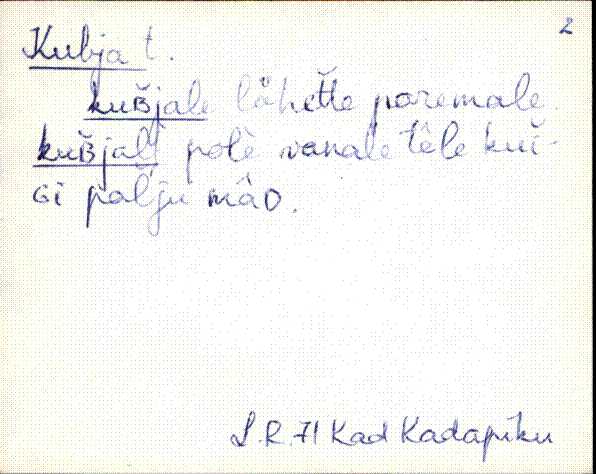 2
Kubja t.
kuʙ̆jale lähet̆te paremale
kuʙ̆jalt pole vanale têle kui-
ɢi pal̆ju mâᴅ.
L.R. 71 Kad Kadapiku